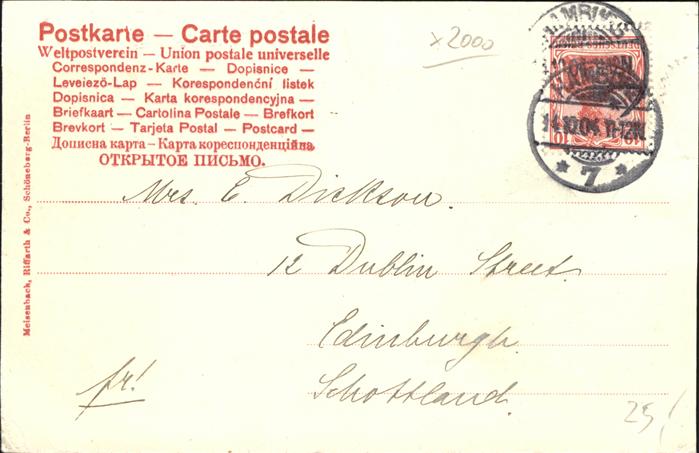 Postkarte — Carte postale
Weltpostverein — Union postale universelle
Correspondenz-Karte — Dopisnice —
Levelező-Lap — Korespondenční listek
Dopisnica — Karta korespondencyjna —
Briefkaart — Cartolina Postale — Brefkort
Brevkort — Tarjeta Postal — Postcard —
Дописна карта — Карта кореспонденційна
ОТКРЫТОЕ ПИСЬМО.
x2000
14.10.04 11-12N
* 7 *
10 10
Mrs. E. Dickson.
12 Dublin Street.
Edinburgh.
Schottland.
fr!
25!
Meisenbach, Riffarth & Co., Schöneberg-Berlin